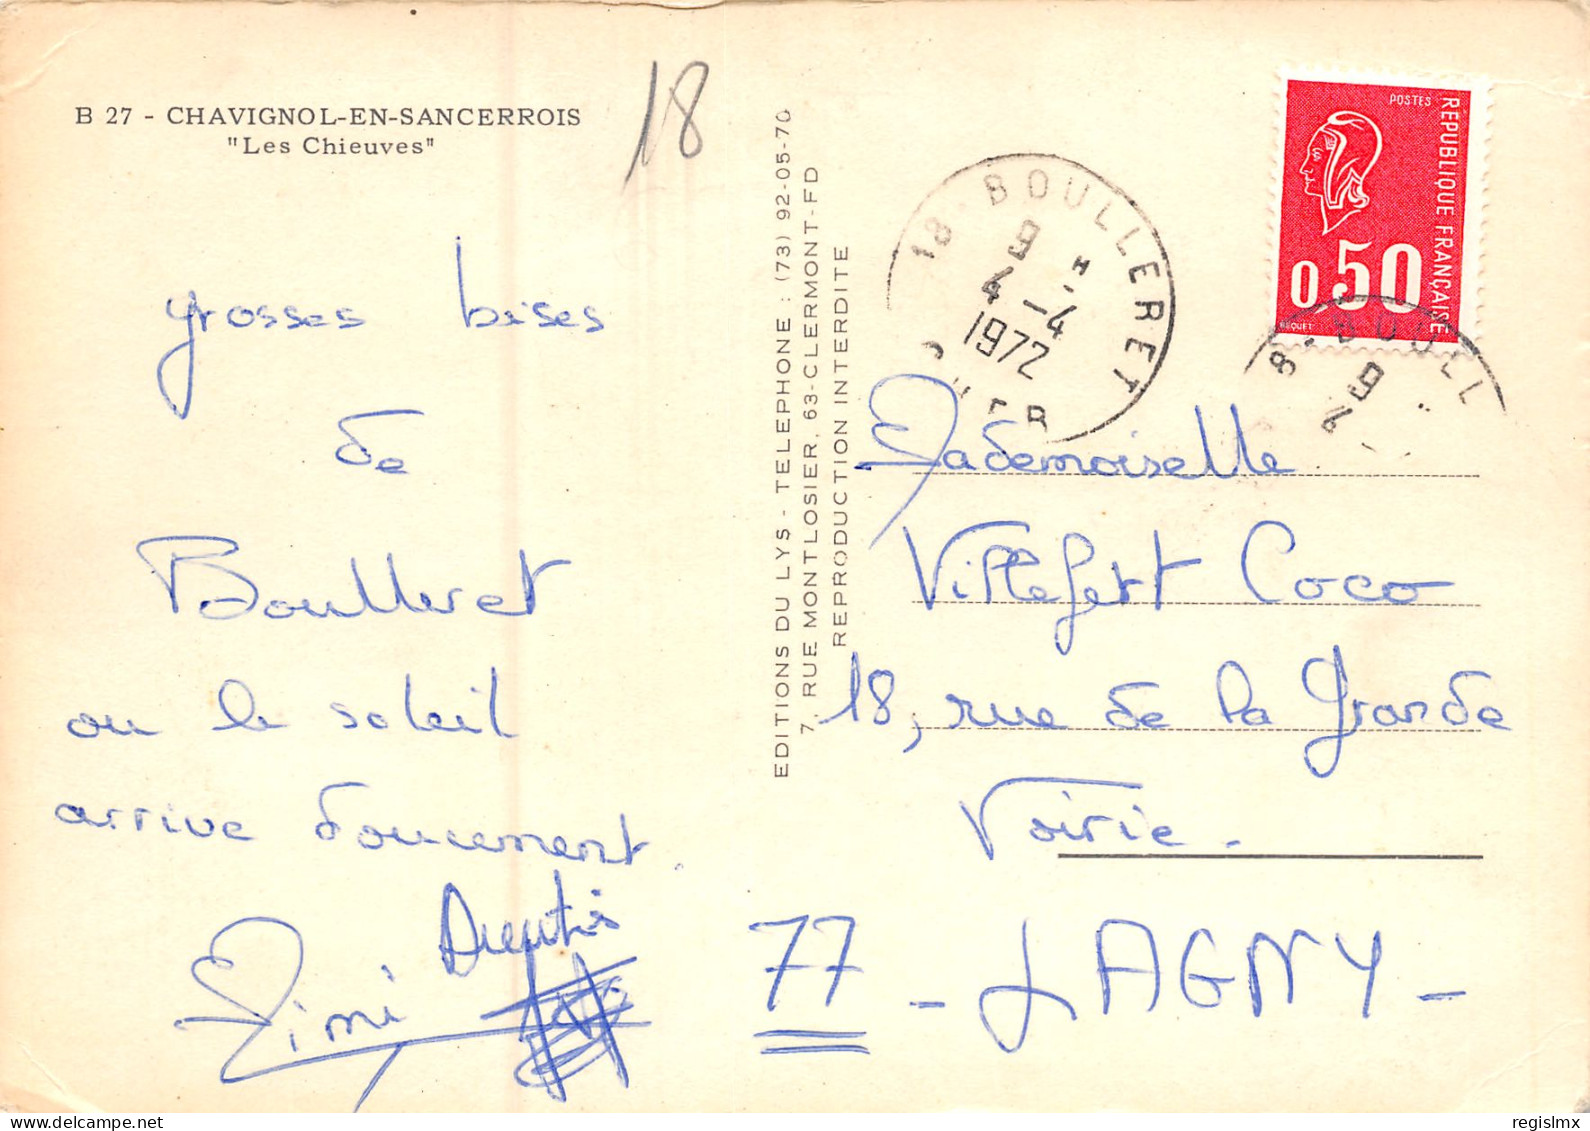 B 27 - CHAVIGNOL-EN-SANCERROIS
"Les Chieuves"
18
grosses bises
de
Boulleret
ou le soleil
arrive doucement.
Mimi
EDITIONS DU LYS - TELEPHONE : (73) 92-05-70
7, RUE MONTLOSIER, 63-CLERMONT-FD
REPRODUCTION INTERDITE
18 - BOULLERET
9 H
4 -4
1972
CHER
POSTES
REPUBLIQUE FRANÇAISE
0,50
BEQUET
8 - BOULL
9
4
Mademoiselle
Villefert Coco
18, rue de la Grande
Voirie.
77 - LAGNY -
regislmx